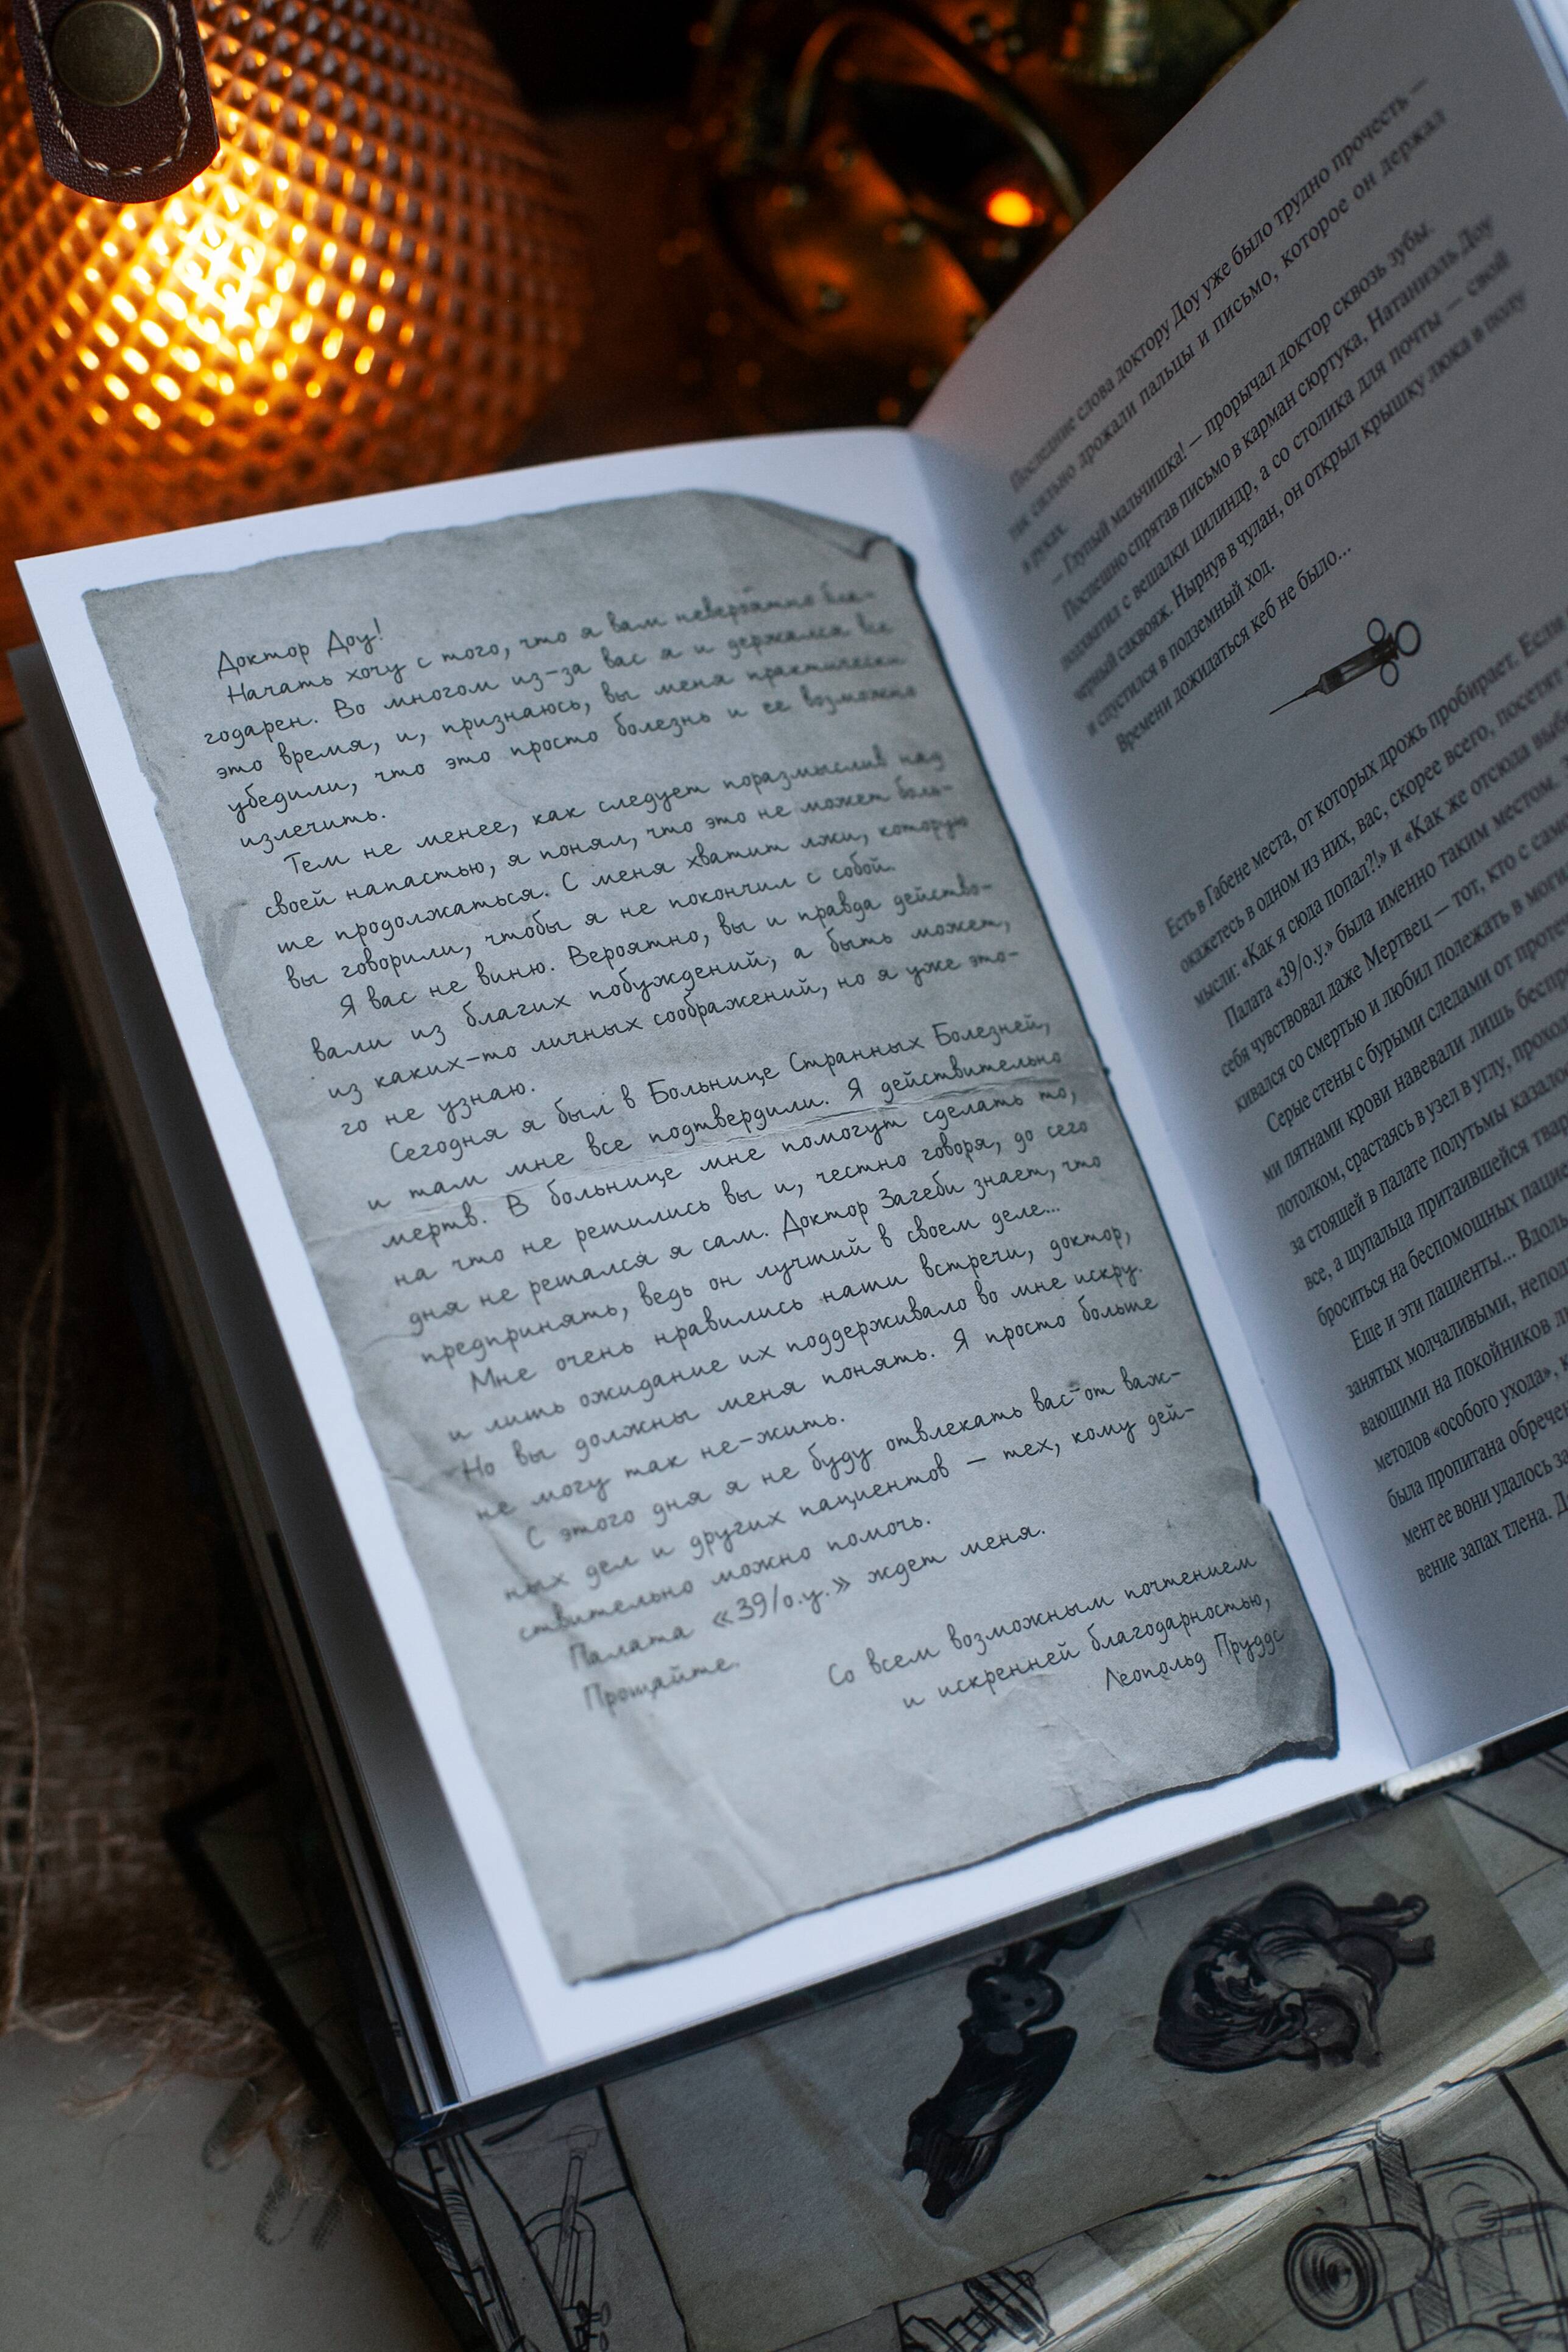 Доктор Доу!
Начать хочу с того, что я вам невероятно бла-
годарен. Во многом из-за вас я и держался все
это время, и, признаюсь, вы меня практически
убедили, что это просто болезнь и ее возможно
излечить.
Тем не менее, как следует поразмыслив над
своей напастью, я понял, что это не может боль-
ше продолжаться. С меня хватит лжи, которую
вы говорили, чтобы я не покончил с собой.
Я вас не виню. Вероятно, вы и правда действо-
вали из благих побуждений, а быть может,
из каких-то личных соображений, но я уже это-
го не узнаю.
Сегодня я был в Больнице Странных Болезней,
и там мне все подтвердили. Я действительно
мертв. В больнице мне помогут сделать то,
на что не решились вы и, честно говоря, до сего
дня не решался я сам. Доктор Загеби знает, что
предпринять, ведь он лучший в своем деле...
Мне очень нравились наши встречи, доктор,
и лишь ожидание их поддерживало во мне искру.
Но вы должны меня понять. Я просто больше
не могу так не-жить.
С этого дня я не буду отвлекать вас от важ-
ных дел и других пациентов — тех, кому дей-
ствительно можно помочь.
Палата «39/о.у.» ждет меня.
Прощайте.
Со всем возможным почтением
и искренней благодарностью,
Леопольд Пруддс
Последние слова доктору Доу уже было трудно прочесть —
так сильно дрожали пальцы и письмо, которое он держал
в руках.
— Глупый мальчишка! — прорычал доктор сквозь зубы.
Поспешно спрятав письмо в карман сюртука, Натаниэль Доу
подхватил с вешалки цилиндр, а со столика для почты — свой
черный саквояж. Нырнув в чулан, он открыл крышку люка в полу
и спустился в подземный ход.
Времени дожидаться кеб не было...
Есть в Габене места, от которых дрожь пробирает. Если
окажетесь в одном из них, вас, скорее всего, посетят
мысли: «Как я сюда попал?!» и «Как же отсюда
Палата «39/о.у.» была именно таким местом.
себя чувствовал даже Мертвец — тот, кто с
кивался со смертью и любил полежать в
Серые стены с бурыми следами от
ми пятнами крови навевали лишь
потолком, срастаясь в узел в углу,
за стоящей в палате полутьмы
все, а щупальца притаившейся
броситься на беспомощных
Еще и эти пациенты... Вдоль
занятых молчаливыми,
вающими на покойников
методов «особого ухода»,
была пропитана
мент ее вони удалось
вение запах тлена.